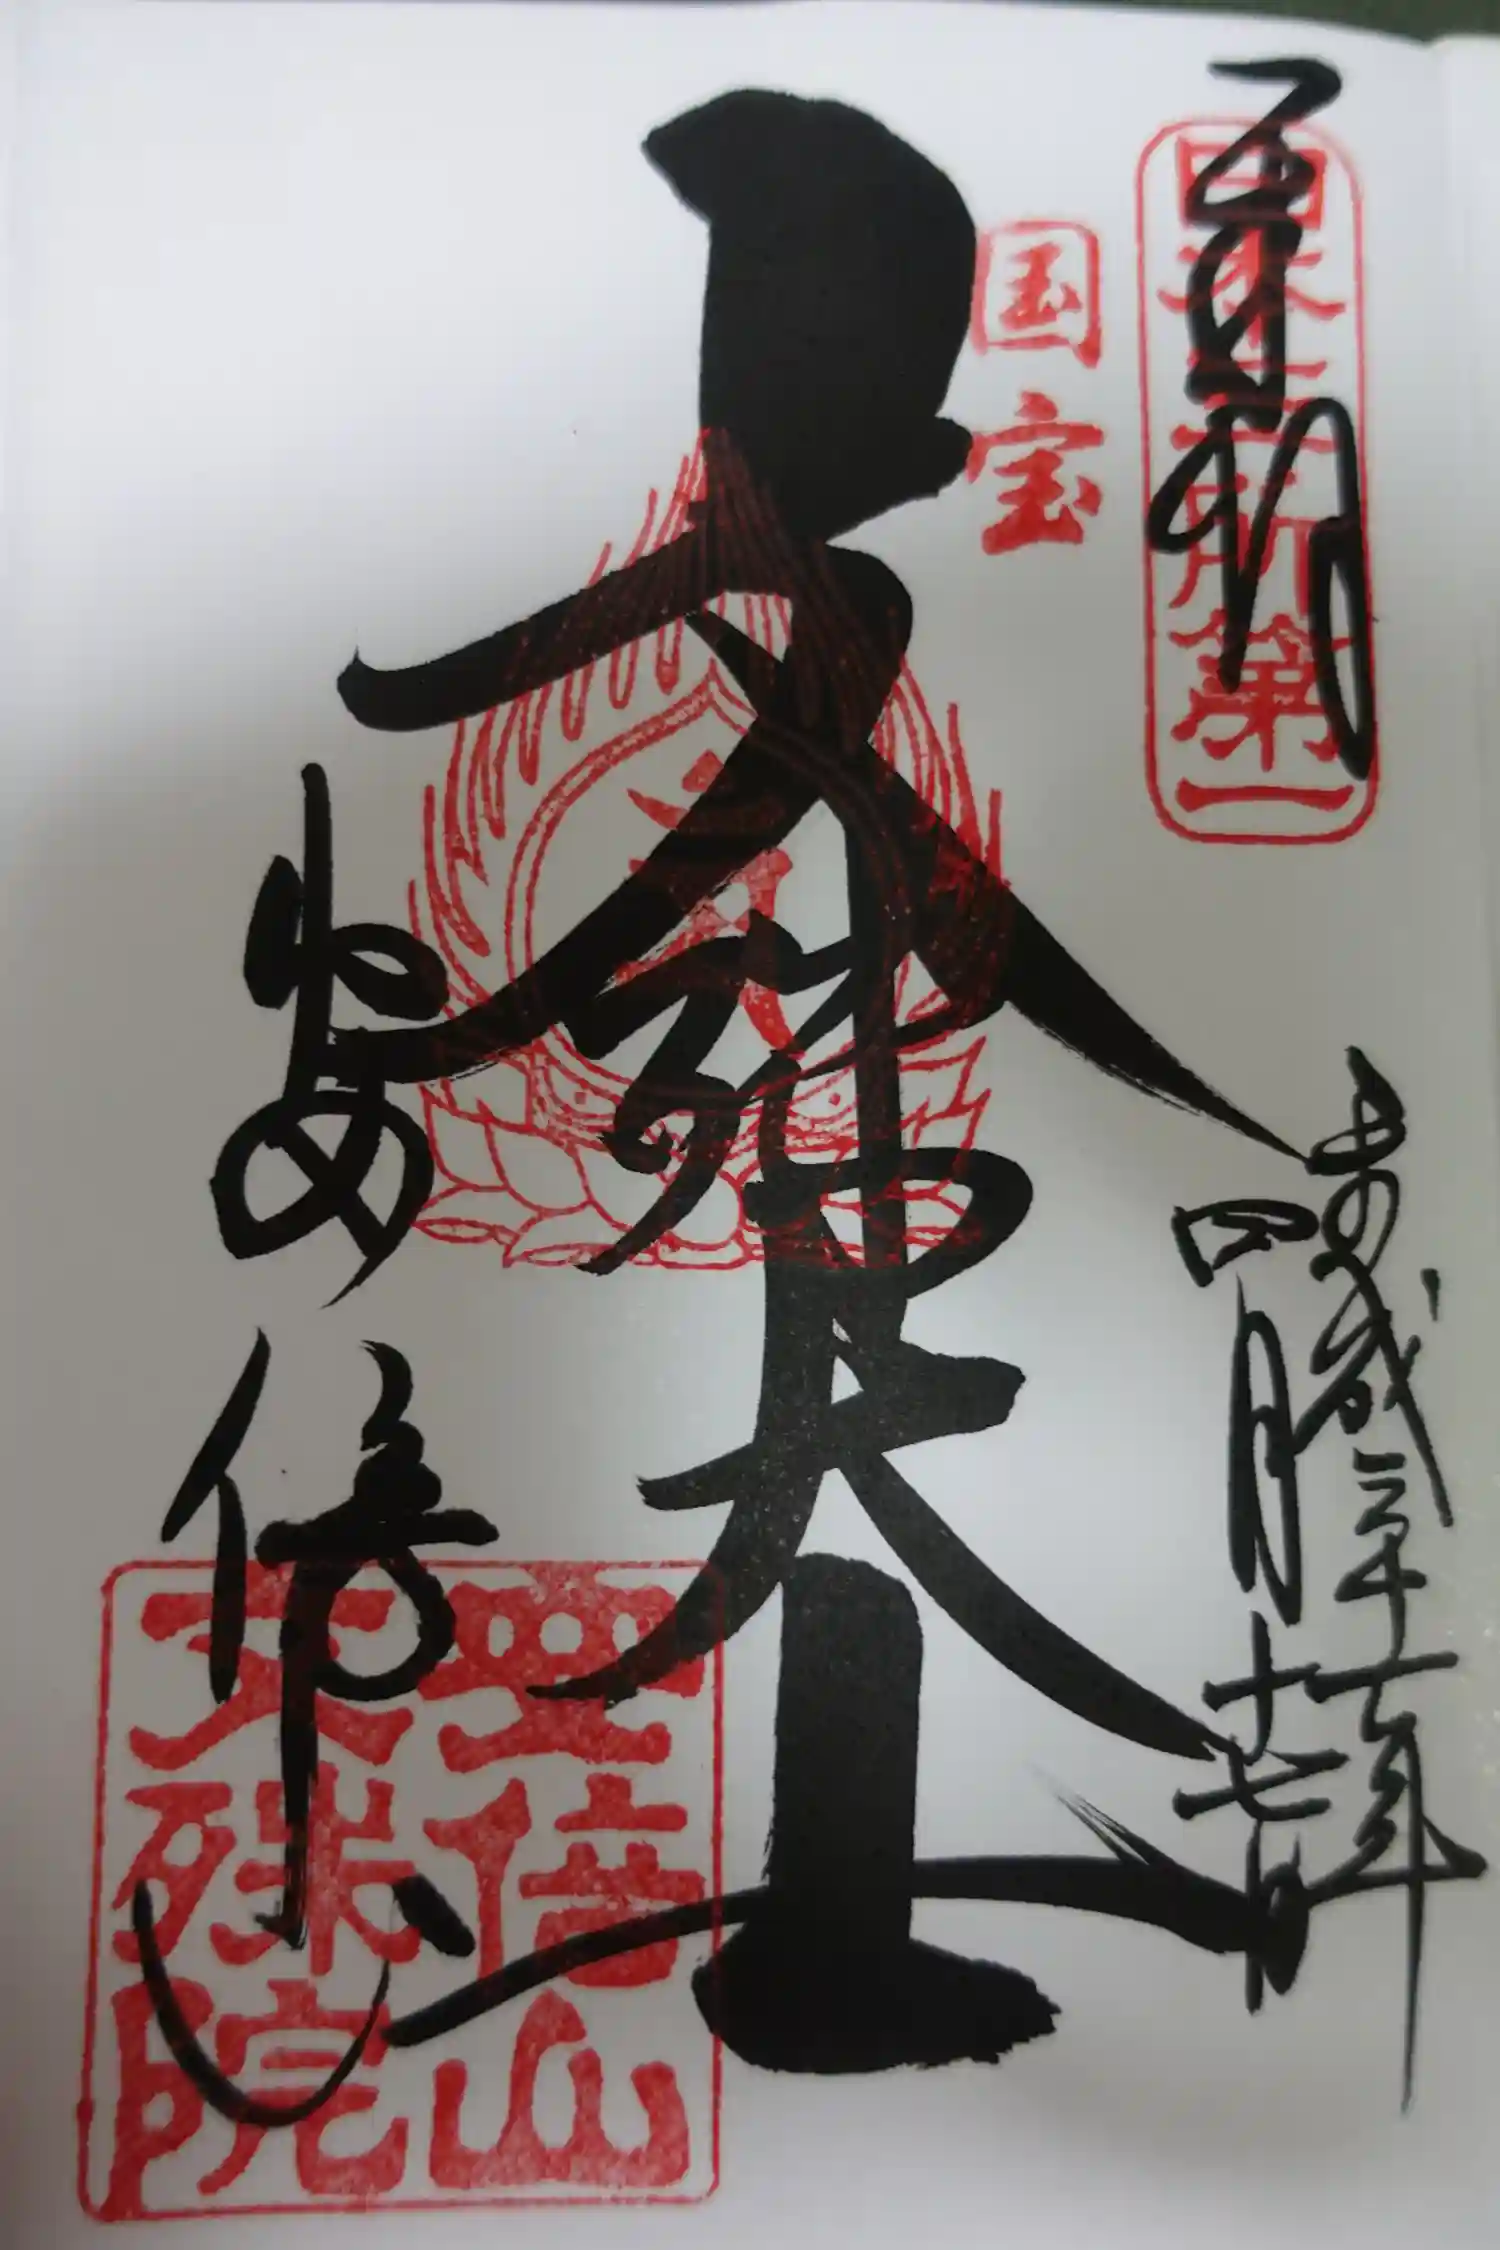 日本三所第一
国宝
平成三十一年
四月十七日
文殊大士
安倍山
安倍山
文殊院